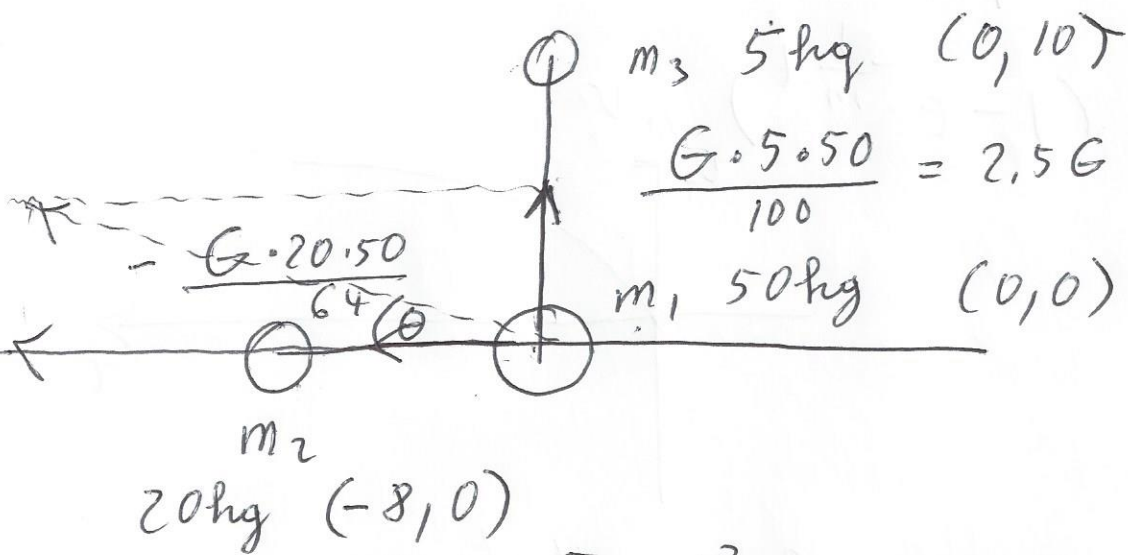 m₃ 5kg (0, 10)
G·5·50 / 100 = 2,5G
- G·20·50 / 64
θ
m₁ 50kg (0,0)
m₂
20kg (-8,0)